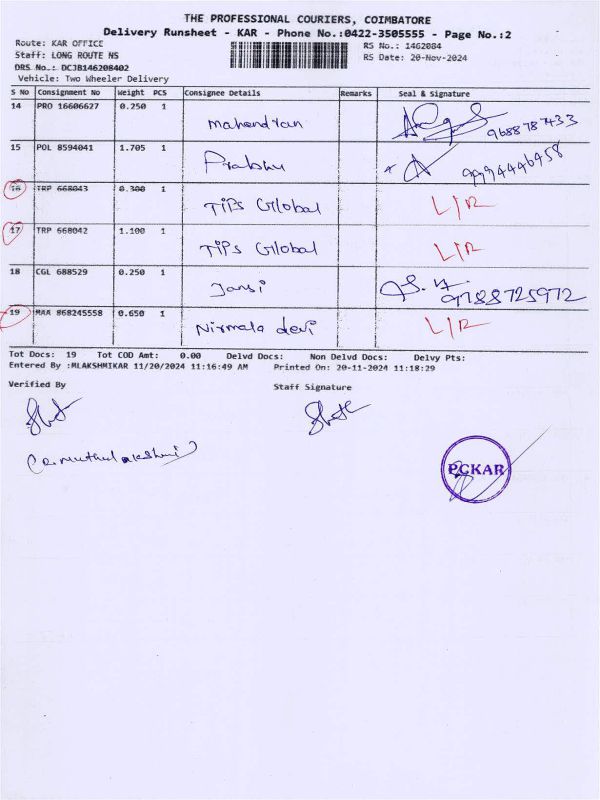 THE PROFESSIONAL COURIERS, COIMBATORE
Delivery Runsheet - KAR - Phone No.:0422-3505555 - Page No.:2
Route: KAR OFFICE RS No.: 1462084
Staff: LONG ROUTE NS RS Date: 20-Nov-2024
DRS No.: DCJB146208402
Vehicle: Two Wheeler Delivery
S No Consignment No Weight PCS Consignee Details Remarks Seal & Signature
14 PRO 16606627 0.250 1
Mahendran 9688787433
15 POL 8594041 1.705 1
Prabhu 9994446958
16 TRP 668043 0.300 1
TIPS Global L/R
17 TRP 668042 1.100 1
TIPS Global L/R
18 CGL 688529 0.250 1
Jansi 9788725972
19 MAA 868245558 0.650 1
Nirmala devi L/R
Tot Docs: 19 Tot COD Amt: 0.00 Delvd Docs: Non Delvd Docs: Delvy Pts:
Entered By :MLAKSHMIKAR 11/20/2024 11:16:49 AM Printed On: 20-11-2024 11:18:29
Verified By Staff Signature
PCKAR